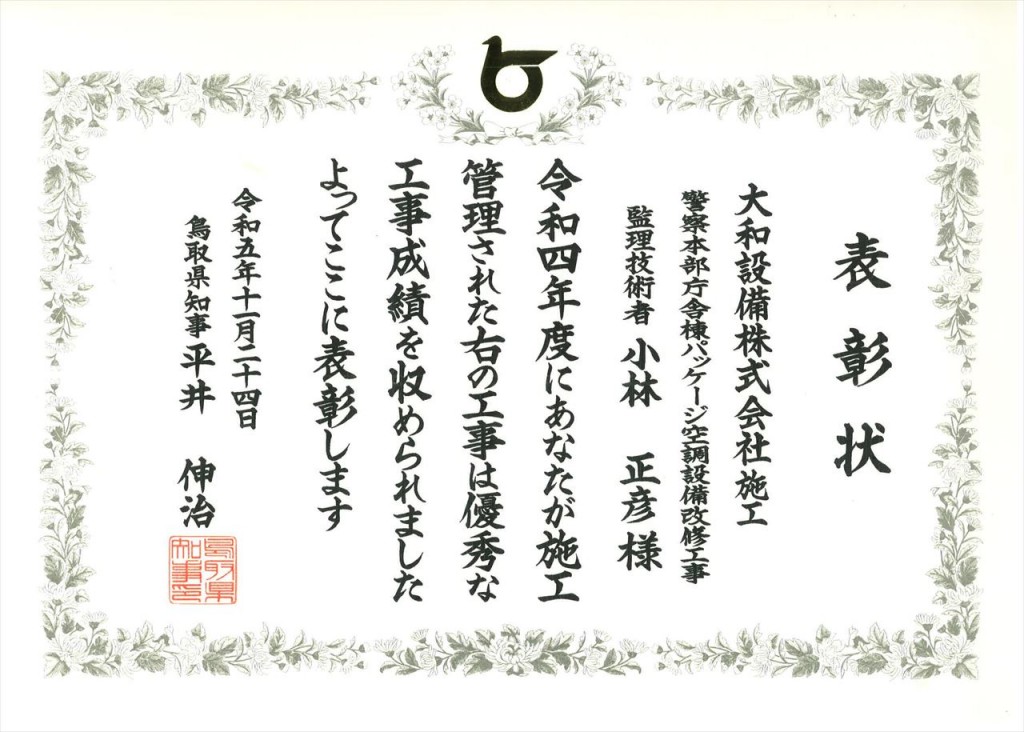 表彰状
大和設備株式会社施工
警察本部庁舎棟パッケージ空調設備改修工事
監理技術者 小林 正彦様
令和四年度にあなたが施工
管理された右の工事は優秀な
工事成績を収められました
よってここに表彰します
令和五年十一月二十四日
鳥取県知事 平井 伸治
鳥取県
知事印